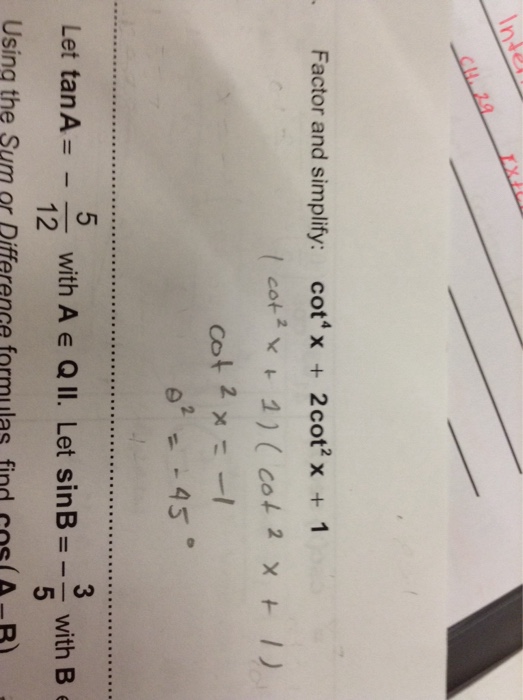 CH. 29
Factor and simplify: cot⁴ x + 2cot² x + 1
(cot² x + 1)(cot² x + 1)
cot² x = -1
θ² = -45°
Let tan A = - 5/12 with A ∈ Q II. Let sin B = - 3/5 with B
Using the Sum or Difference formulas, find cos(A - B)